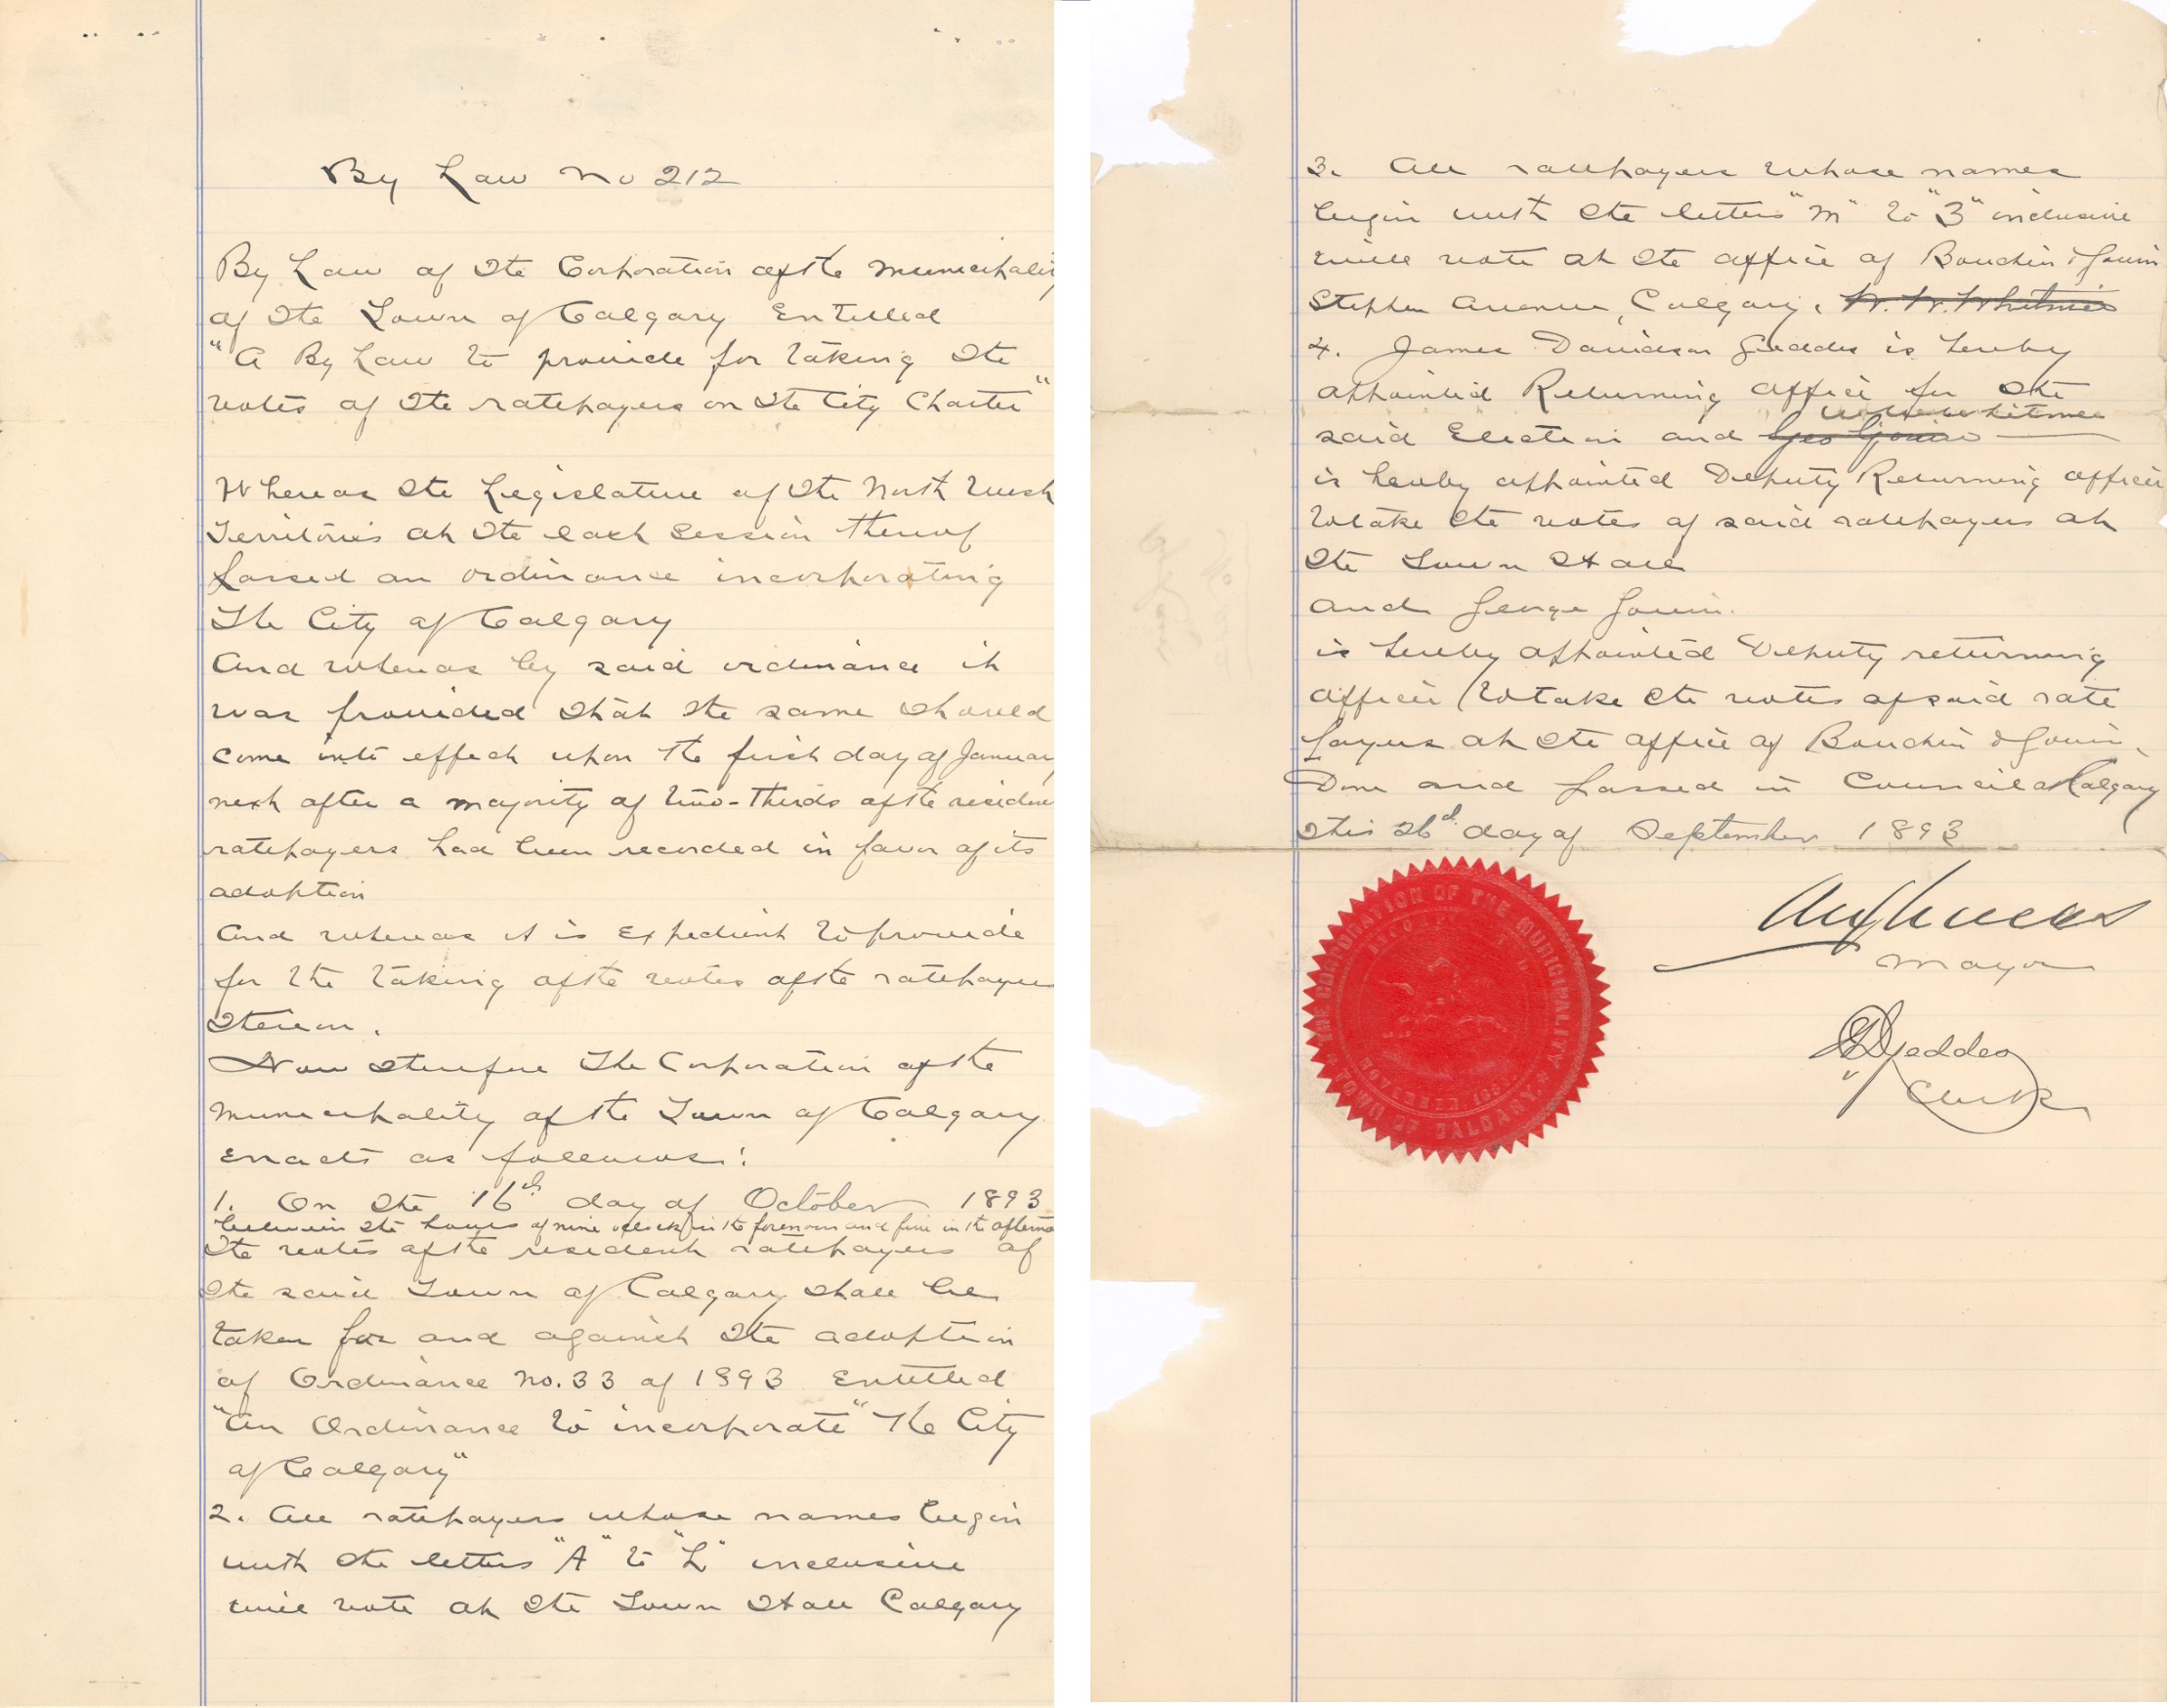 By Law No 212
By Law of the Corporation of the Municipality
of the Town of Calgary Entitled
"A By Law to provide for taking the
votes of the ratepayers on the City Charter"
Whereas the Legislature of the North West
Territories at the last session thereof
passed an ordinance incorporating
The City of Calgary
And whereas by said ordinance it
was provided that the same should
come into effect upon the first day of January
next after a majority of two-thirds of the resident
ratepayers had been recorded in favor of its
adoption
And whereas it is expedient to provide
for the taking of the votes of the ratepayers
thereon.
Now therefore The Corporation of the
Municipality of the Town of Calgary
enacts as follows:
1. On the 16th day of October 1893
between the hours of nine oclock in the forenoon and five in the afternoon
the votes of the resident ratepayers of
the said Town of Calgary shall be
taken for and against the adoption
of Ordinance No. 33 of 1893 Entitled
"An Ordinance to incorporate "The City
of Calgary"
2. All ratepayers whose names begin
with the letters "A" to "L" inclusive
will vote at the Town Hall Calgary
3. All ratepayers whose names
begin with the letters "M" to "Z" inclusive
will vote at the office of Bouchin & Gouin
Stephen Avenue, Calgary. W. W. Whitmee
4. James Davidson Geddes is hereby
appointed Returning officer for the
Whitmee
said Election and Geo Gouin
is hereby appointed Deputy Returning officer
to take the votes of said ratepayers at
the Town Hall
and George Gouin.
is hereby appointed Deputy returning
officer to take the votes of said rate
payers at the office of Bouchin & Gouin.
Done and passed in Council at Calgary
this 26d. day of September 1893
Lucas
Mayor
Geddes
Clerk
THE CORPORATION OF THE MUNICIPALITY
TOWN OF CALGARY.
NOVEMBER